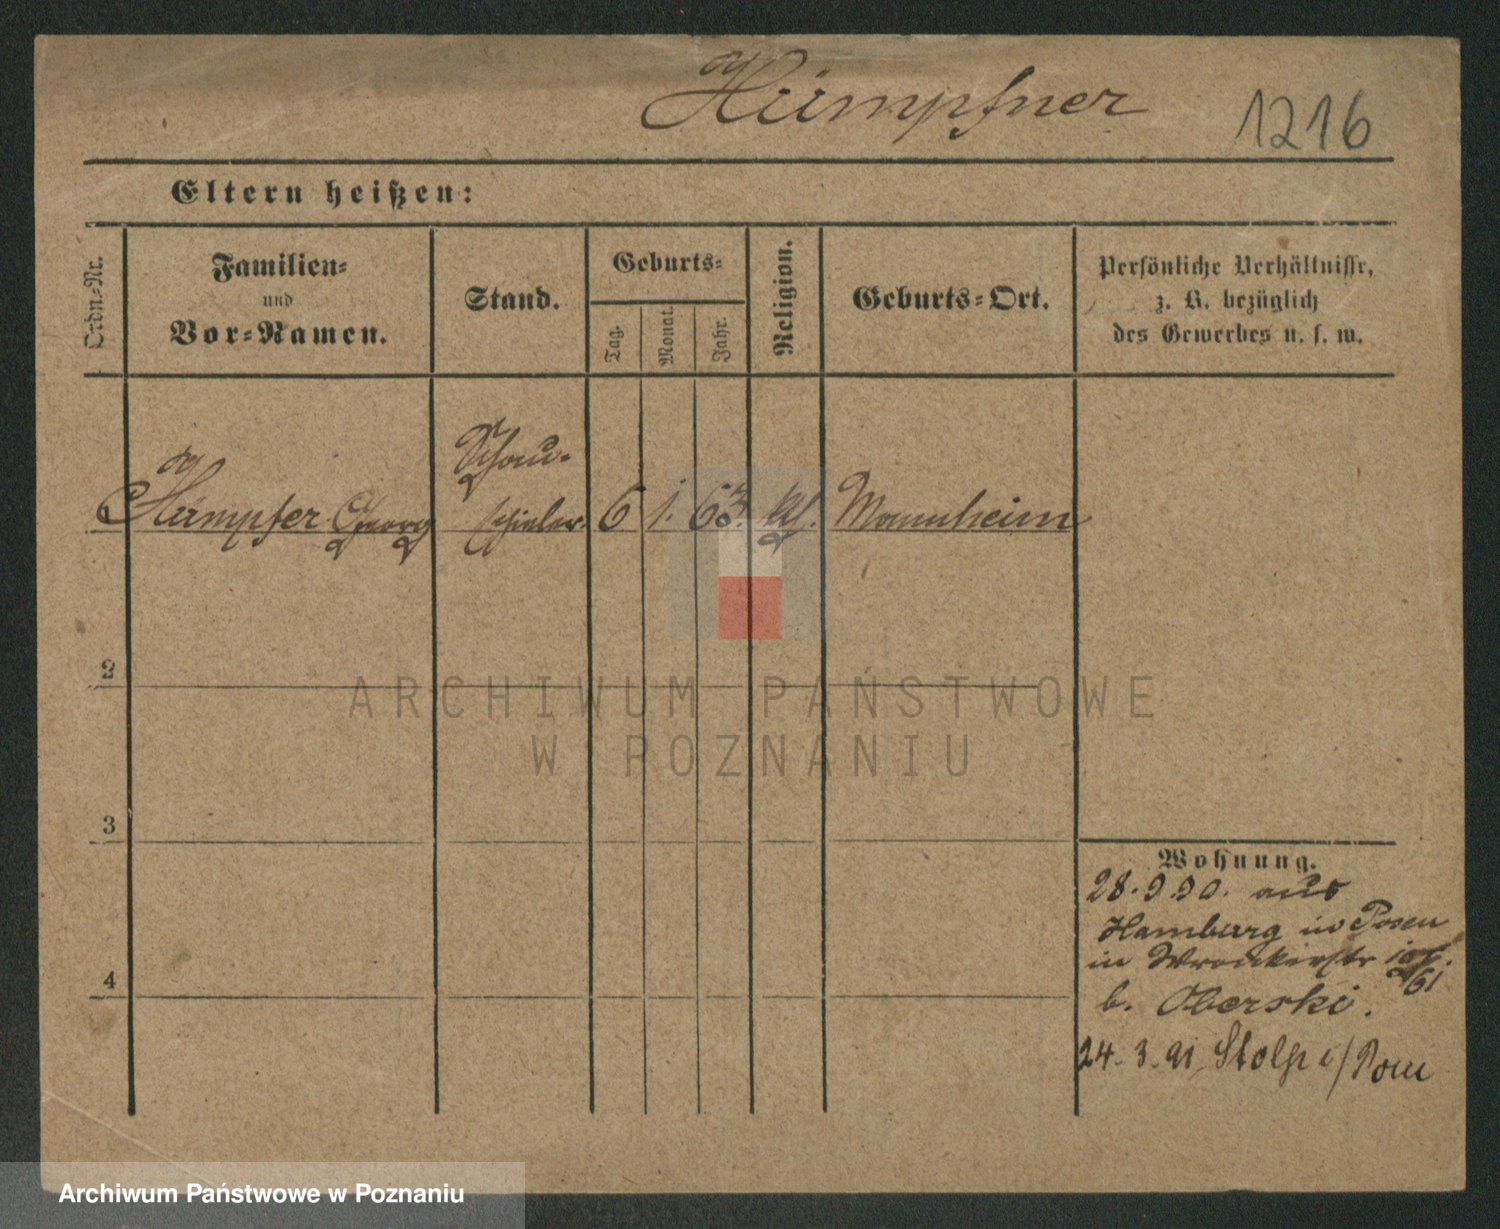 Hümpfner
1216
Eltern heißen:
Ordn.-Nr.
Familien-
und
Vor-Namen.
Stand.
Geburts-
Tag.
Monat.
Jahr.
Religion.
Geburts-Ort.
Persönliche Verhältnisse,
z. B. bezüglich
des Gewerbes u. s. w.
Hümpfer Georg
Schau-
spieler.
6
1.
63.
Mannheim
2
3
4
Wohnung.
28. 9 90. aus
Hamburg in Posen
in Wronkerstr
b. Oberski.
24. 3. 91. Stolp i/Pom
ARCHIWUM PAŃSTWOWE
W POZNANIU
Archiwum Państwowe w Poznaniu